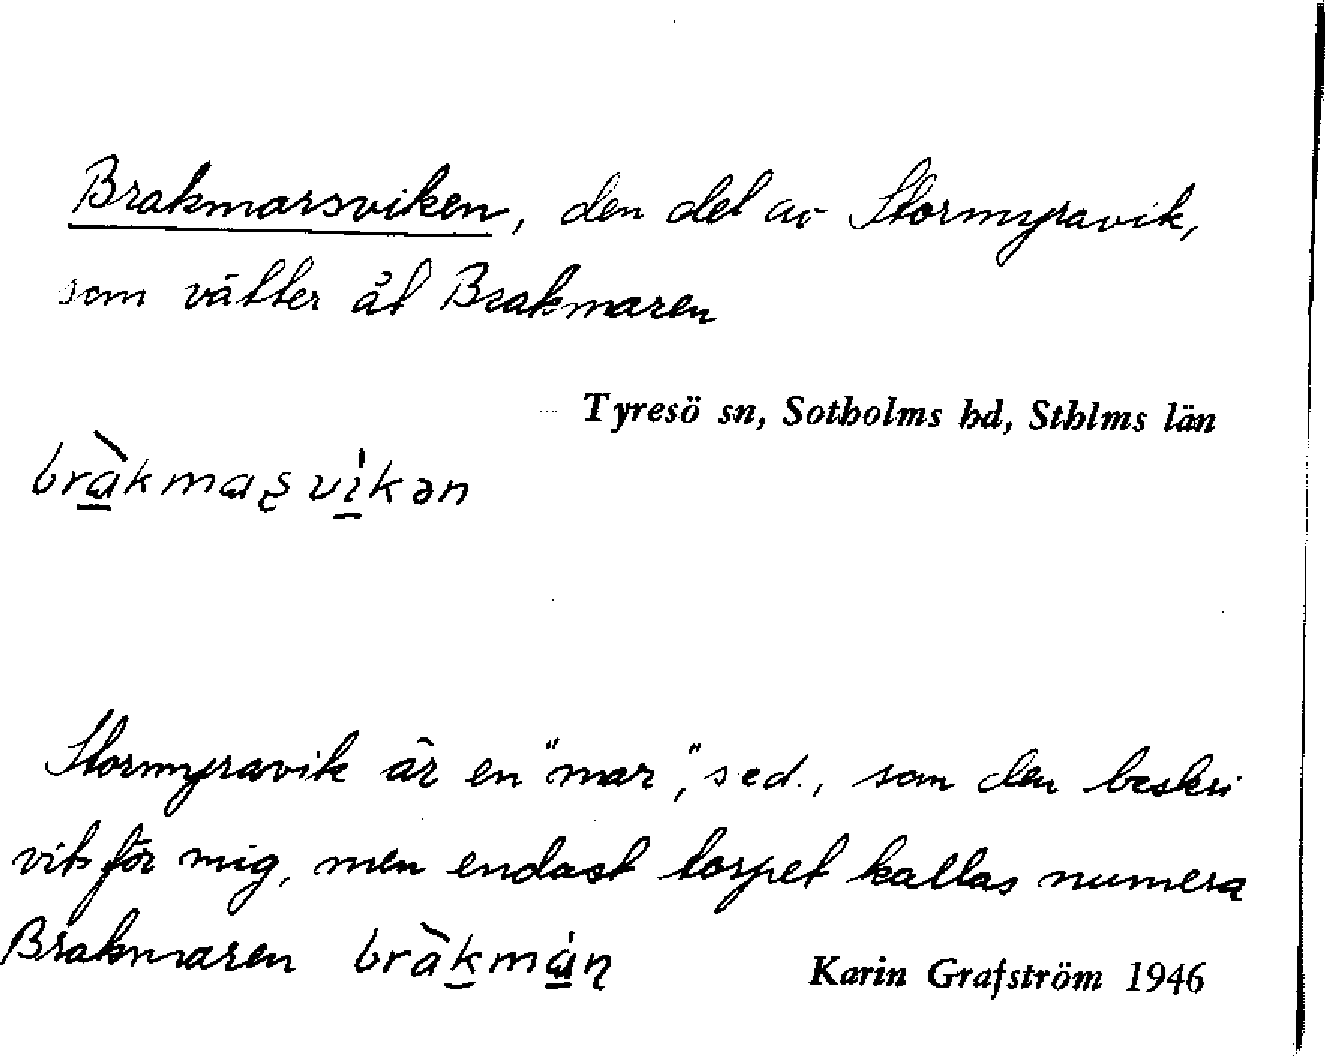 Brakmarsviken, den del av Stormyravik,
som vätter åt Brakmaren
Tyresö sn, Sotholms hd, Sthlms län
bràkmaʂvikən
Stormyravik är en "mar", sed., som den beskri
vits för mig, men endast torpet kallas numera
Brakmaren bràkmáɳ
Karin Grafström 1946